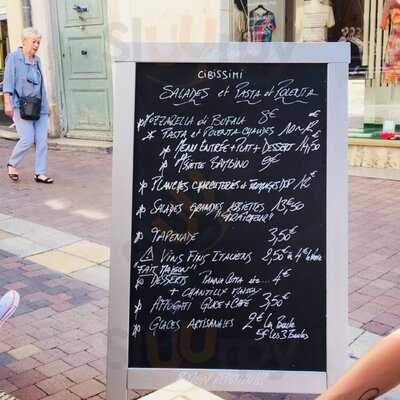 CIBISSIMI
SALADES et PASTA et POLENTA
* MOZZARELLA di BUFALA 8€
* PASTA et POLENTA CHAUDES 10
* MENU ENTRÉE + PLAT + DESSERT 14,50
* ASSIETTE BAMBINO 9€
* PLANCHES CHARCUTERIES et FROMAGES DOP
* SALADES GRANDES ASSIETTES 13,50
"TRAITEUR"
* TAPENADE 3,50€
⚠ VINS FINS ITALIENS 2,50 à 4€
"FAIT MAISON"
* DESSERTS PANNA COTTA etc... 4€
+ CHANTILLY
* AFFOGATI GLACE + CAFÉ 3,50€
* GLACES ARTISANALES 2€ La Boule
5€ les 3 Boules